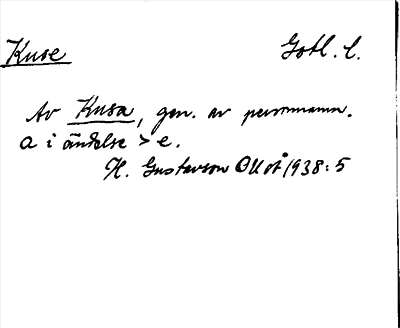 Kuse Gotl. l.
Av Kusa, gen. av personnamn.
a i ändelse > e.
H. Gustavson OUoÅ 1938:5